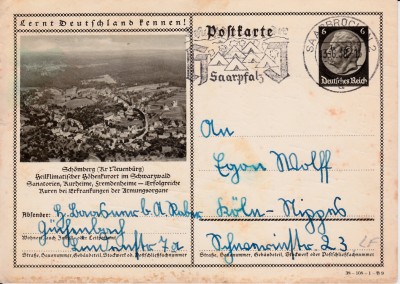 Lernt Deutschland kennen!
Postkarte
Saarpfalz
SAARBRÜCKEN 2
6 6
Deutsches Reich
Schömberg (Kr Neuenbürg)
Heilklimatischer Höhenkurort im Schwarzwald
Sanatorien, Kurheime, Fremdenheime — Erfolgreiche
Kuren bei Erkrankungen der Atmungsorgane
An
Egon Wolff
Köln-Nippes
Schwerinstr. 23
Absender:
b. A. Huber
Güchenbach
7a
Wohnort, auch Zustell- oder Leitpostamt
Straße, Hausnummer, Gebäudeteil, Stockwerk od. Postschließfachnummer
Straße, Hausnummer, Gebäudeteil, Stockwerk oder Postschließfachnummer